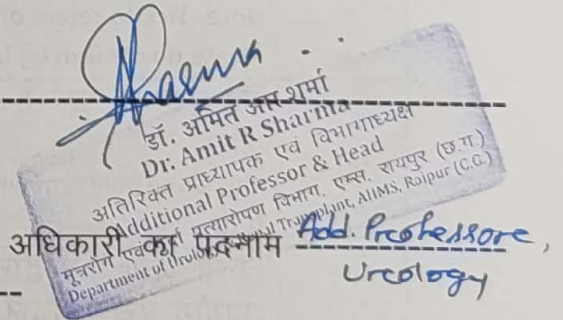 Sharma
डॉ. अमित आर शर्मा
Dr. Amit R Sharma
अतिरिक्त प्राध्यापक एवं विभागाध्यक्ष
Additional Professor & Head
मूत्ररोग एवं प्रत्यारोपण विभाग, एम्स, रायपुर (छ.ग.)
Department of Urology Transplant, AIIMS, Raipur (C.G.)
अधिकारी का पदनाम Add. Professore,
Urology